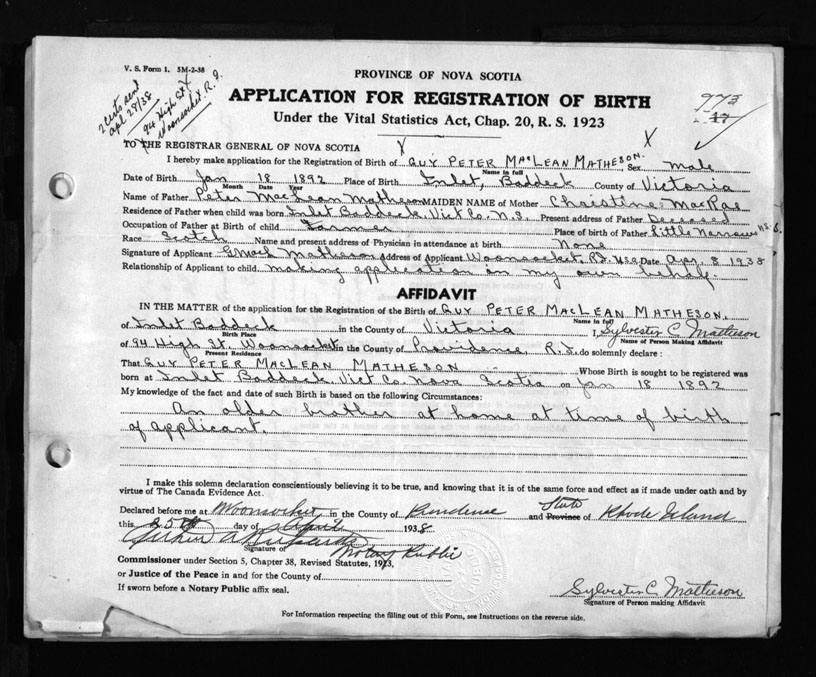 V. S. Form 1. 5M-2-38
2 certs sent
apl 29/38
94 High St
Woonsocket R. I.
PROVINCE OF NOVA SCOTIA
973
17
APPLICATION FOR REGISTRATION OF BIRTH
Under the Vital Statistics Act, Chap. 20, R. S. 1923
TO THE REGISTRAR GENERAL OF NOVA SCOTIA
I hereby make application for the Registration of Birth of GUY PETER MACLEAN MATHESON. Sex Male
Name in full
Date of Birth Jan 18 1892 Place of Birth Inlet, Baddeck County of Victoria
Month Date Year
Name of Father Peter MacLean Matheson MAIDEN NAME of Mother Christine MacRae
Residence of Father when child was born Inlet Baddeck, Vict Co. N.S. Present address of Father Deceased
Occupation of Father at Birth of child Farmer Place of birth of Father Little Narrows N.S.
Race Scotch Name and present address of Physician in attendance at birth None
Signature of Applicant Matheson Address of Applicant Woonsocket, R.I. USA Date Apr. 8 1938
Relationship of Applicant to child making application on my own behalf.
AFFIDAVIT
IN THE MATTER of the application for the Registration of the Birth of GUY PETER MACLEAN MATHESON.
Name in full
of Inlet Baddeck in the County of Victoria I, Sylvester C. Matheson
Birth Place Name of Person Making Affidavit
of 94 High St, Woonsocket in the County of Providence, R. I. do solemnly declare:
Present Residence
That GUY PETER MACLEAN MATHESON Whose Birth is sought to be registered was
born at Inlet Baddeck, Vict Co. Nova Scotia on Jan 18 1892
My knowledge of the fact and date of such Birth is based on the following Circumstances:
An older brother at home at time of birth
of applicant.
I make this solemn declaration conscientiously believing it to be true, and knowing that it is of the same force and effect as if made under oath and by
virtue of The Canada Evidence Act.
Declared before me at Woonsocket in the County of Providence State and Province of Rhode Island
this 25th day of April 1938
Signature of Notary Public
Commissioner under Section 5, Chapter 38, Revised Statutes, 1923,
or Justice of the Peace in and for the County of
If sworn before a Notary Public affix seal.
Sylvester C. Matheson
Signature of Person making Affidavit
For Information respecting the filling out of this Form, see Instructions on the reverse side.